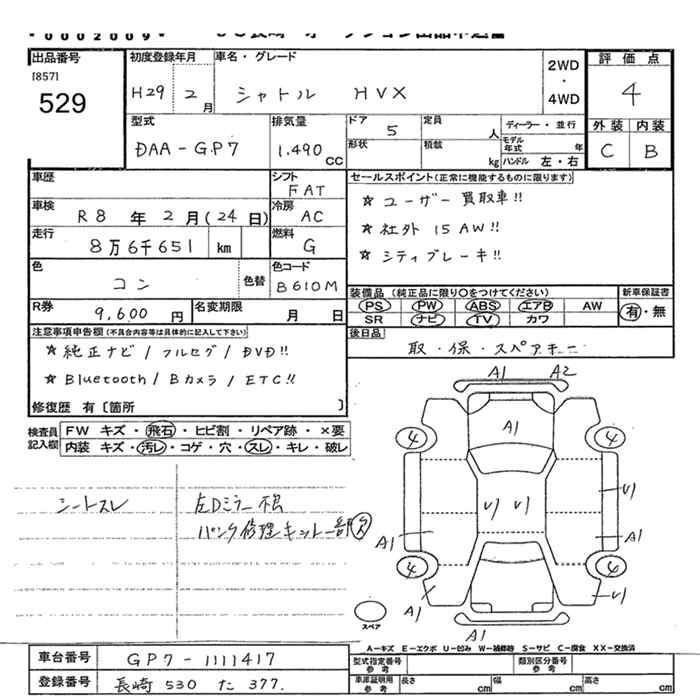 *0002009*
出品番号
[857]
529
初度登録年月
H29 2月
車名・グレード
シャトル HVX
2WD
・
4WD
評価点
4
外装 内装
C B
型式
DAA-GP7
排気量
1.490 CC
ドア 5
形状
定員 人
積載 kg
ディーラー・並行
モデル年式 年
ハンドル 左・右
車歴
シフト FAT
車検 R8年2月(24日)
冷房 AC
走行 8万6千651 km
燃料 G
色 コン 色替
色コード B610M
R券 9,600円
名変期限 月 日
セールスポイント(正常に機能するものに限ります)
☆ ユーザー買取車!!
☆ 社外15AW!!
☆ シティブレーキ!!
装備品(純正品に限り〇をつけてください)
PS PW ABS エアB AW
SR ナビ TV カワ
新車保証書
有・無
後日品
取・保・スペアキー
注意事項申告欄(不具合内容等は具体的に記入して下さい)
☆ 純正ナビ/フルセグ/DVD!!
☆ Bluetooth/Bカメラ/ETC!!
修復歴 有〔箇所 〕
検査員記入欄
FW キズ・飛石・ヒビ割・リペア跡・×要
内装 キズ・汚レ・コゲ・穴・スレ・キレ・破レ
シートスレ
左Dミラー不良
パンク修理キット一部欠
A1 A2
A1
4 4
U1 U1 U1
A1 A1
4 4
A1 U1
A1
スペア
A-キズ E-エクボ U-凹み W-補修跡 S-サビ C-腐食 XX-交換済
車台番号 GP7-1111417
登録番号 長崎 530 た 377.
型式指定番号 参考
類別区分番号 参考
車庫証明用 参考
長さ cm
幅 cm
高さ cm